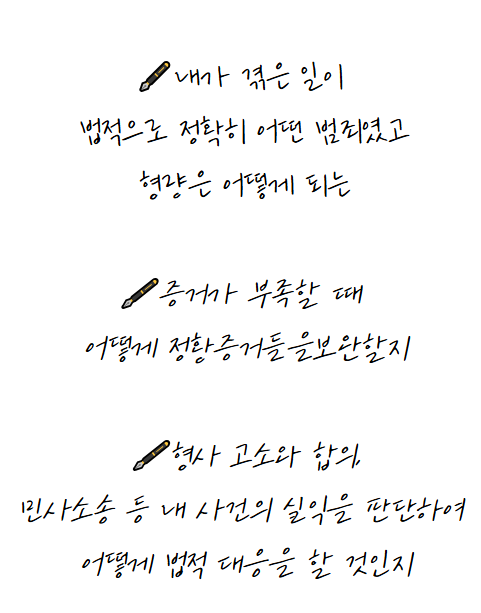 내가 겪은 일이
법적으로 정확히 어떤 범죄였고
형량은 어떻게 되는
증거가 부족할 때
어떻게 정황증거들을보완할지
형사 고소와 합의,
민사소송 등 내 사건의 실익을 판단하여
어떻게 법적 대응을 할 것인지